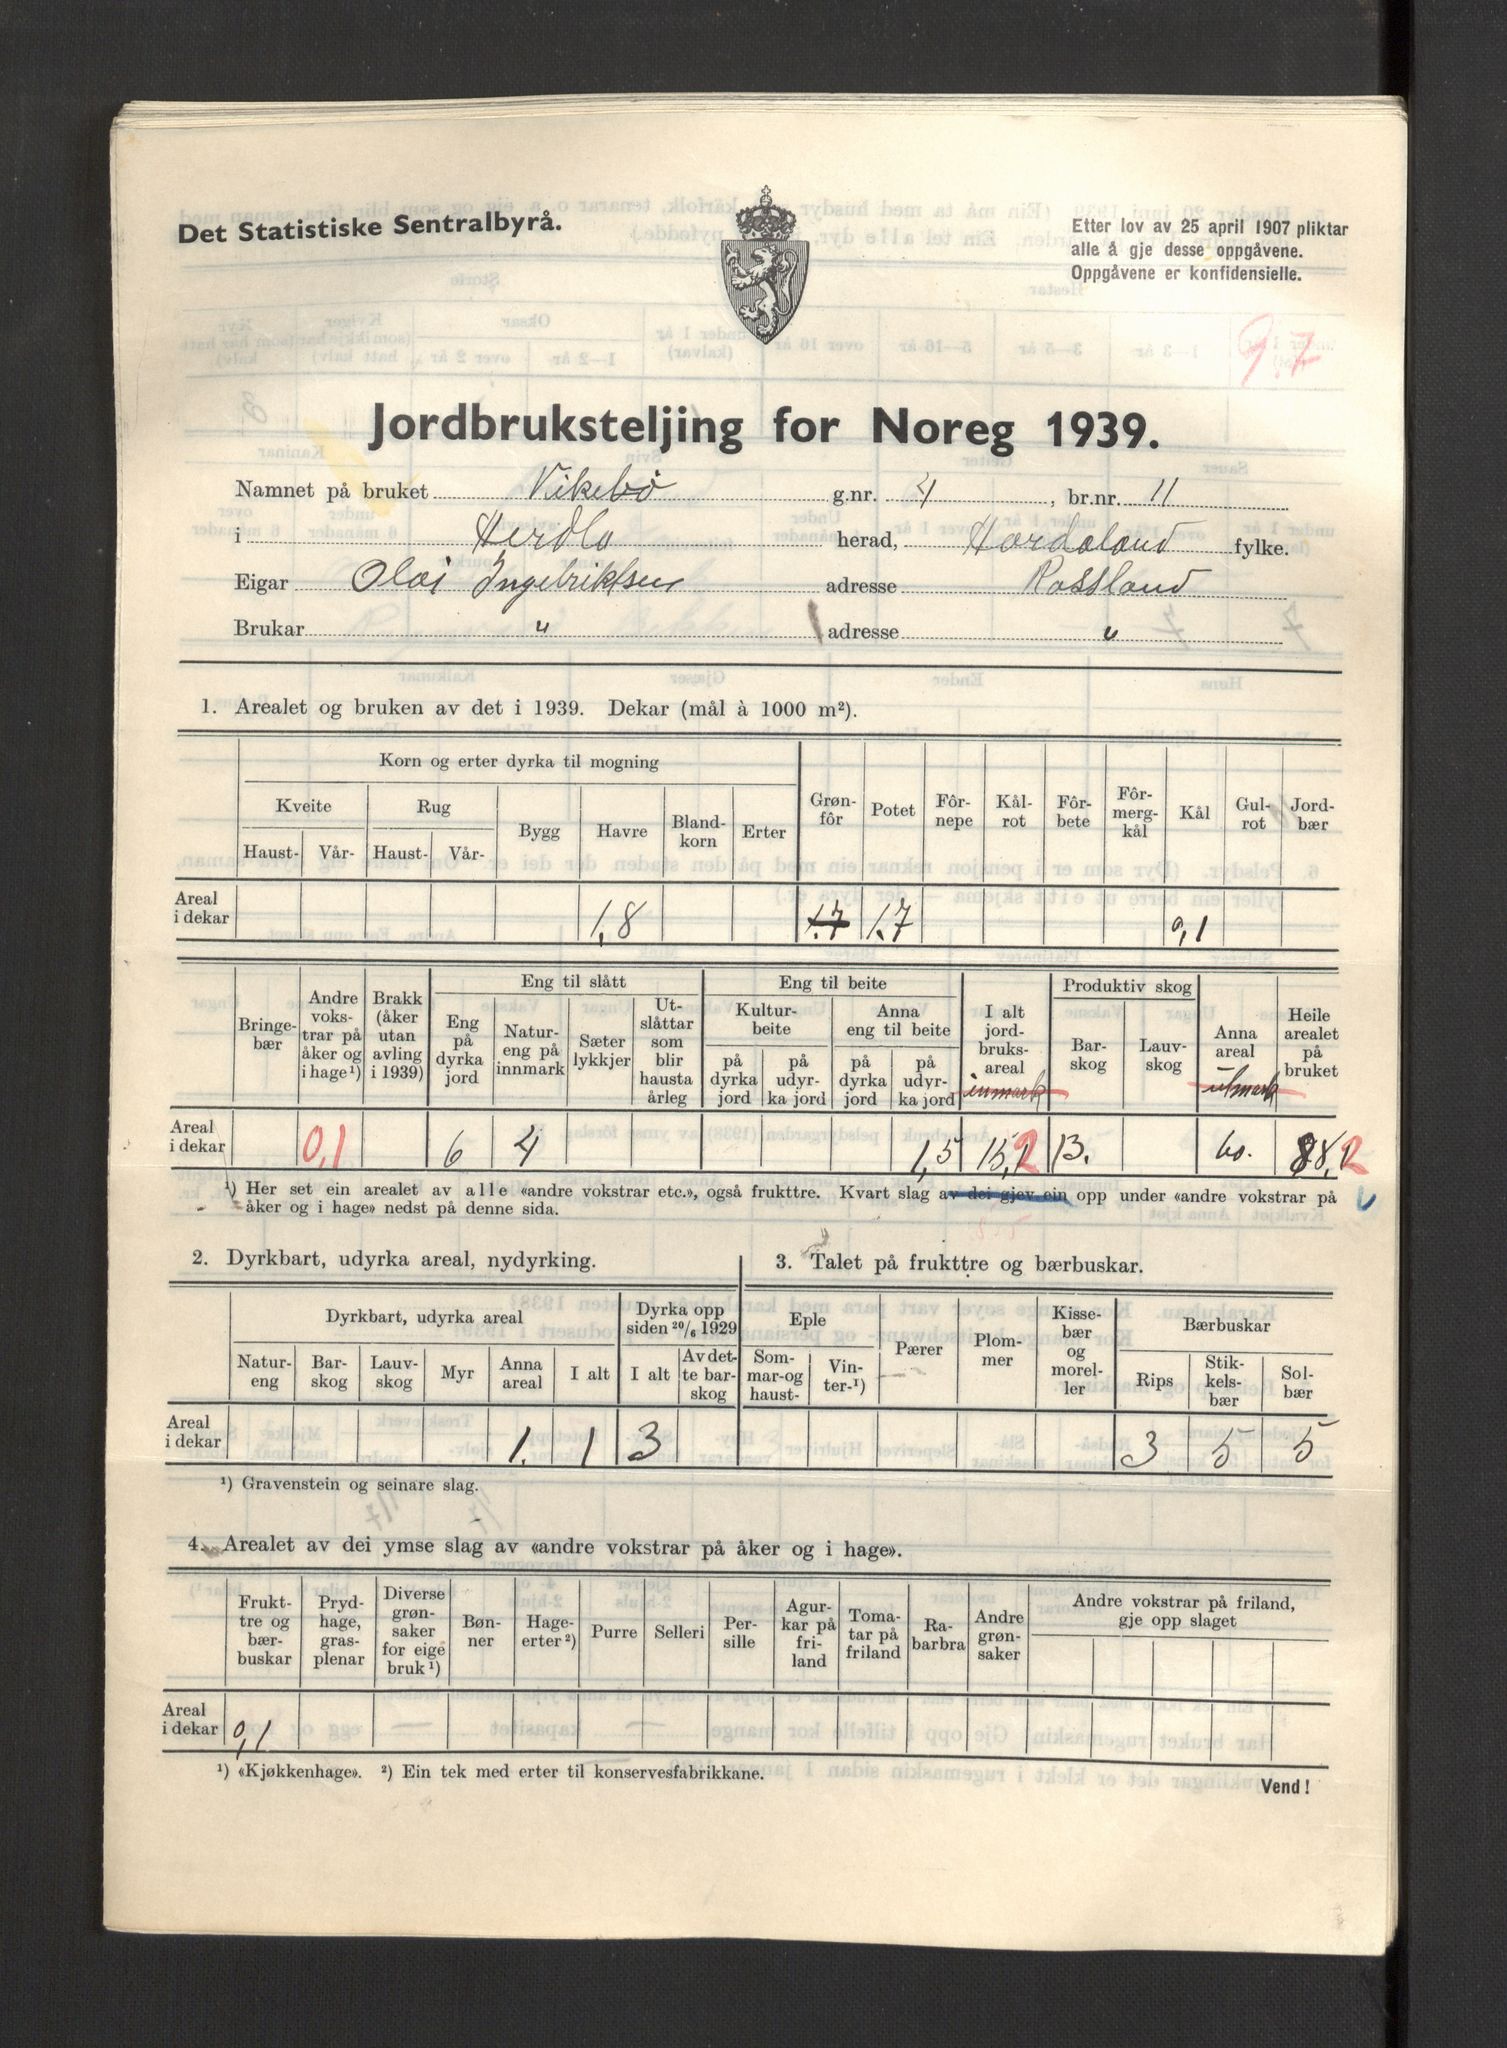 Det Statistiske Sentralbyrå.
Etter lov av 25 april 1907 pliktar
alle å gje desse oppgåvene.
Oppgåvene er konfidensielle.
9.7
Jordbruksteljing for Noreg 1939.
Namnet på bruket Vikebö g.nr. 4, br.nr. 11
i Herdla herad, Hordaland fylke.
Eigar Olai Ingebriktsen adresse Rossland
Brukar " adresse "
1. Arealet og bruken av det i 1939. Dekar (mål à 1000 m²).
Korn og erter dyrka til mogning
Kveite Rug Bygg Havre Blandkorn Erter Grønfôr Potet Fôrnepe Kålrot Fôrbete Fôrmergkål Kål Gulrot Jordbær
Haust- Vår- Haust- Vår-
Areal i dekar 1,8 1.7 1.7 0,1
Bringebær Andre vokstrar på åker og i hage¹) Brakk (åker utan avling i 1939) Eng til slått Eng til beite I alt jordbruksareal inmark Produktiv skog Anna areal utmark Heile arealet på bruket
Eng på dyrka jord Natureng på innmark Sæterlykkjer Utslåttar som blir hausta årleg Kulturbeite Anna eng til beite Barskog Lauvskog
på dyrka jord på udyrka jord på dyrka jord på udyrka jord
Areal i dekar 0,1 6 4 1,5 15,2 13. 60. 88,2
¹) Her set ein arealet av alle «andre vokstrar etc.», også frukttre. Kvart slag av dei gjev ein opp under «andre vokstrar på
åker og i hage» nedst på denne sida.
2. Dyrkbart, udyrka areal, nydyrking.
Dyrkbart, udyrka areal Dyrka opp siden 20/6 1929
Natureng Barskog Lauvskog Myr Anna areal I alt I alt Av dette barskog
Areal i dekar 1. 1 3
3. Talet på frukttre og bærbuskar.
Eple Pærer Plommer Kissebær og moreller Bærbuskar
Sommar- og haust- Vinter-¹) Rips Stikkelsbær Solbær
3 5 5
¹) Gravenstein og seinare slag.
4. Arealet av dei ymse slag av «andre vokstrar på åker og i hage».
Frukttre og bærbuskar Prydhage, grasplenar Diverse grønsaker for eige bruk¹) Bønner Hageerter²) Purre Selleri Persille Agurkar på friland Tomatar på friland Rabarbra Andre grønsaker Andre vokstrar på friland, gje opp slaget
Areal i dekar 0,1
¹) «Kjøkkenhage». ²) Ein tek med erter til konservesfabrikkane.
Vend!